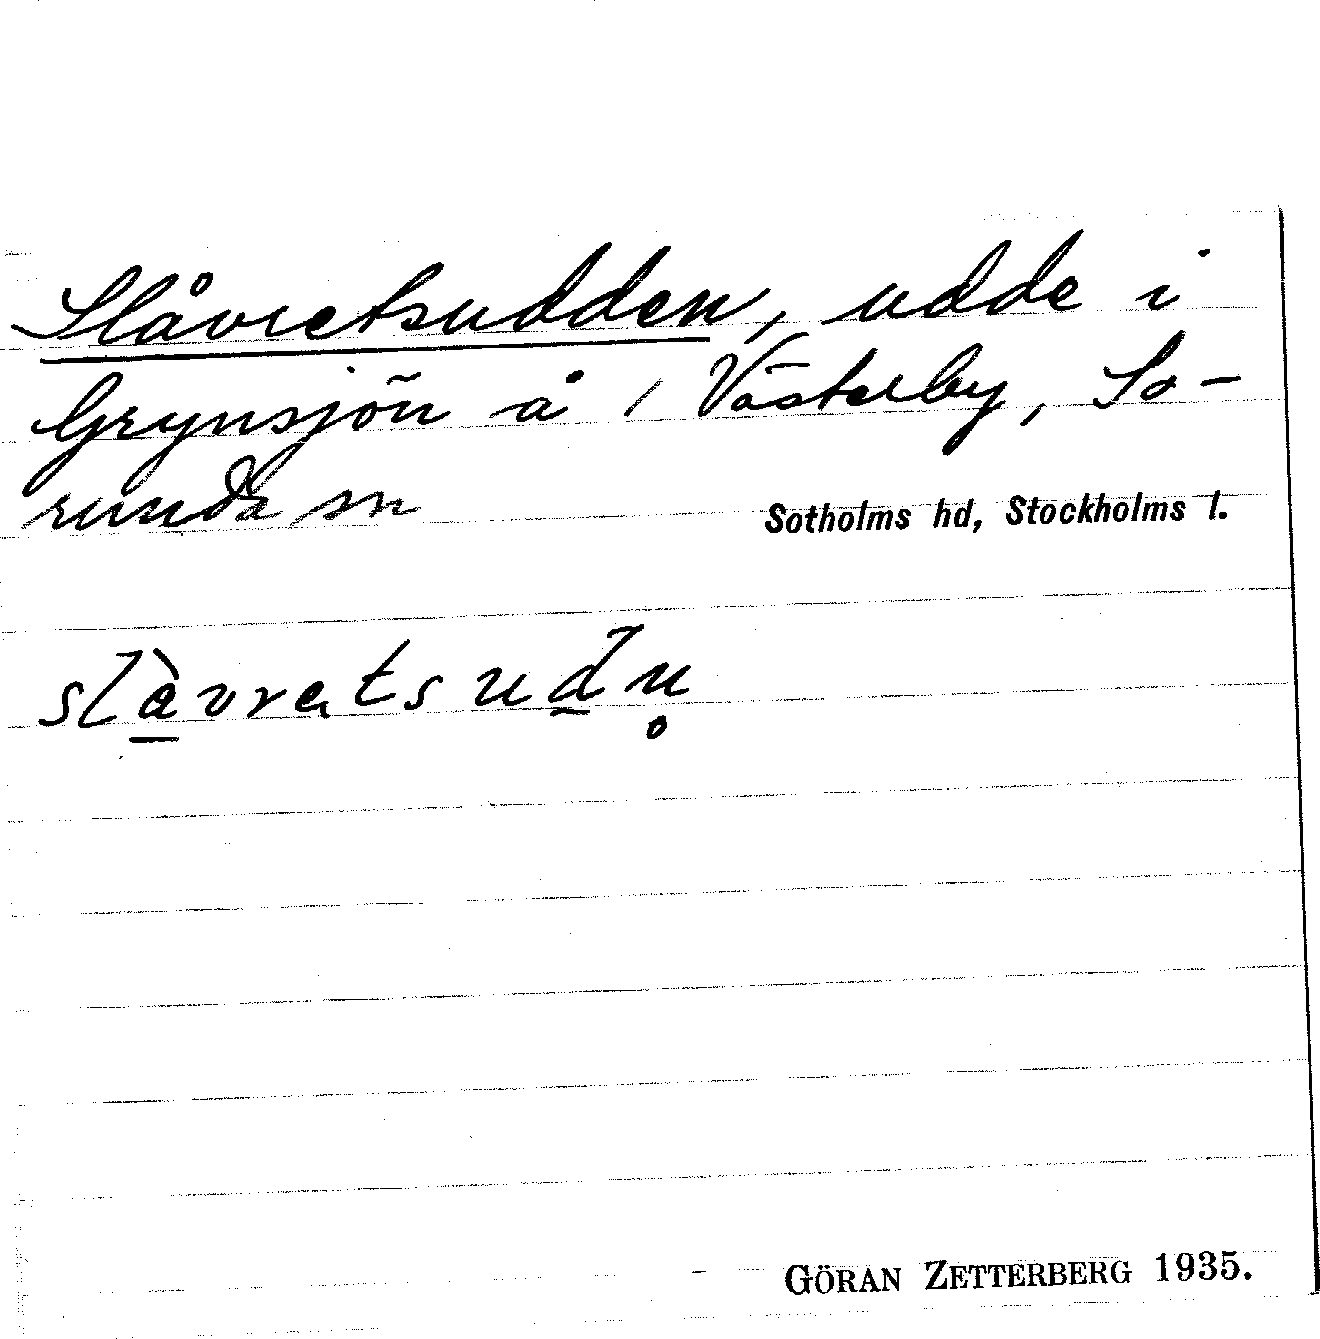 Slåvretsudden, udde i
Grynsjön å / Västerby, So-
runda sn
Sotholms hd, Stockholms l.
slàvretsudn̥
GÖRAN ZETTERBERG 1935.